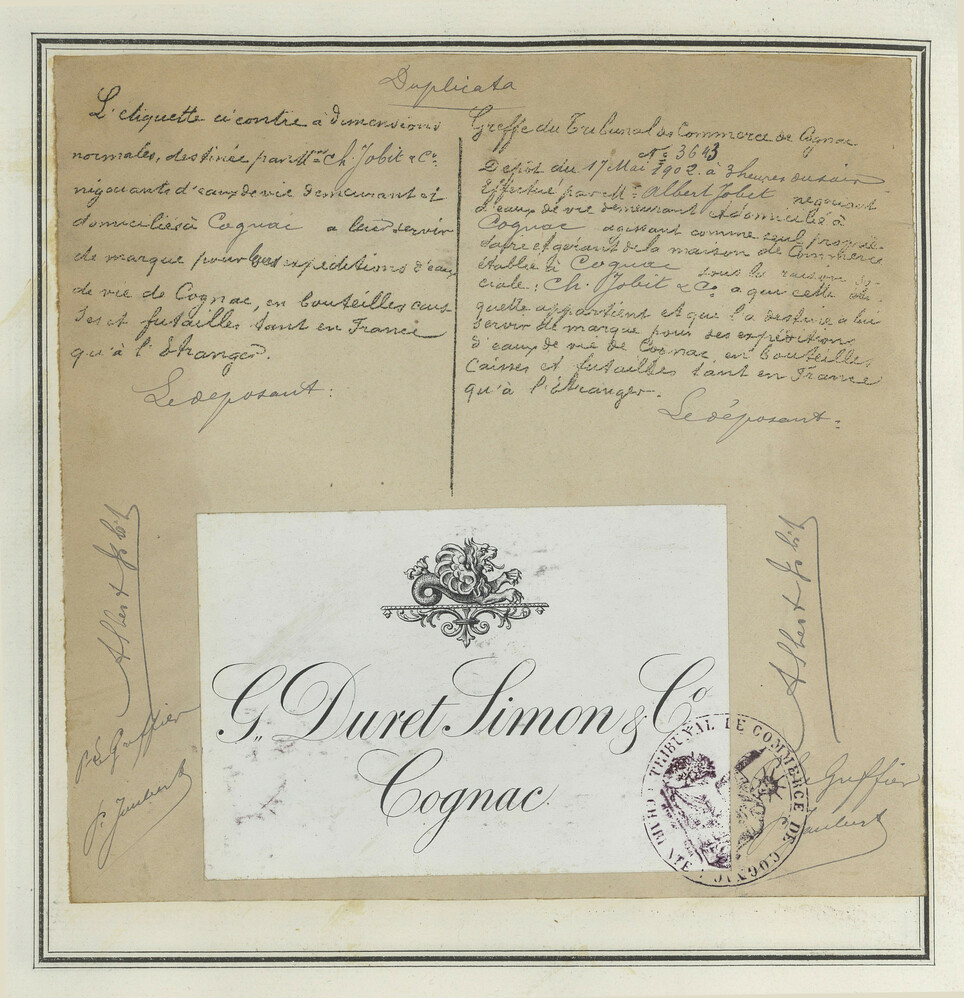 Duplicata
L'etiquette ci contre à dimensions
normales, destinée par Mrs Ch. Jobit & Co.
négociants d'eaux de vie demeurant et
domiciliés à Cognac a leur servir
de marque pour expéditions d'eaux
de vie de Cognac, en bouteilles cais
ses et futailles tant en France
qu'à l'Etranger.
Le deposant:
Greffe du Tribunal de Commerce de Cognac
No 3643
Depôt du 17 Mai 1902 à 3 heures du soir
Effectué par Mr Albert Jobit négociant
d'eaux de vie demeurant et domicilié à
Cognac agissant comme seul proprié-
taire et gérant de la maison de Commerce
établie à Cognac sous la raison so-
ciale: Ch. Jobit & Co. a qui cette éti
quette appartient et que l'a destine a lui
servir de marque pour ses expéditions
d'eaux de vie de Cognac, en bouteilles,
caisses et futailles tant en France
qu'à l'étranger.
Le déposant:
Albert Jobit
Greffier
Albert Jobit
Greffier
G. Duret Simon & Co
Cognac
TRIBUNAL DE COMMERCE DE COGNAC